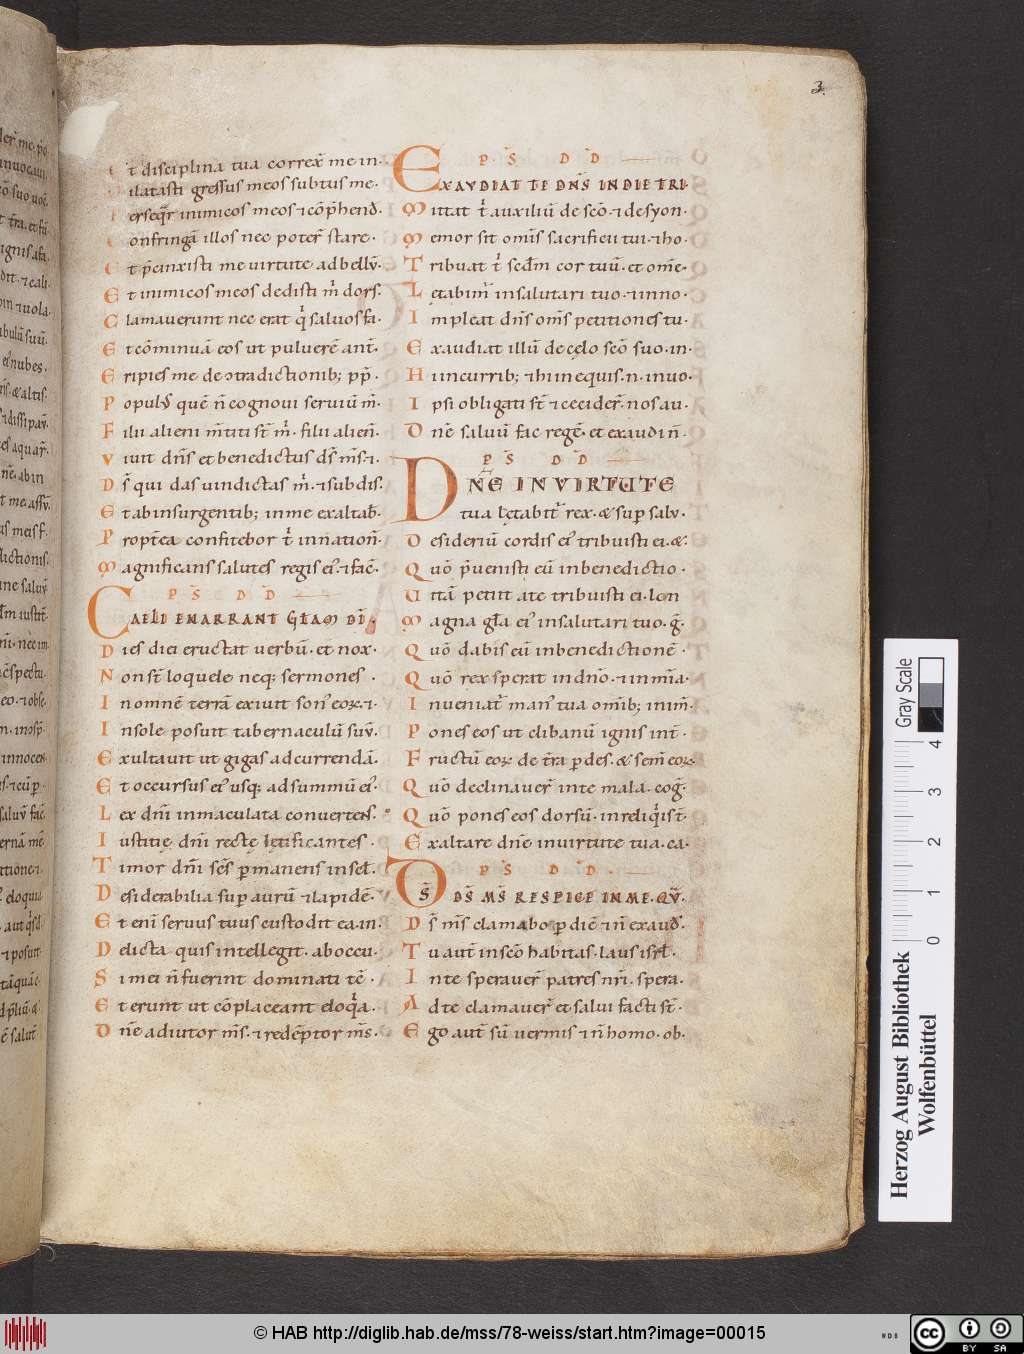 3.
Et disciplina tua correx̄ me in·
Dilatasti gressus meos subtus me·
Perseq̄r inimicos meos ⁊ cōp̄hend̄·
Confringā illos nec poter̄ stare·
Et p̄cinxisti me uirtute ad bellū·
Et inimicos meos dedisti m̄ dors̄·
Clamauerunt nec erat qͥ saluos fa·
Et cōminuā eos ut puluerē ant̄·
Eripies me de ↄtradictionib; pp̄·
Populꝰ quē n̄ cognoui seruiū m̄·
Filii alieni m̄titi st̄ m̄· filii alien̄·
Viuit dn̄s et benedictus ds̄ m̄s· ⁊·
Ds̄ qui das uindictas m̄· ⁊ subdis·
Et ab insurgentib; in me exaltab̄·
Propt̄ea confitebor tͥ in nation̄·
Magnificans salutes regis eiꝰ· ⁊ fac̄·
PS̄ DD̄
CAELI ENARRANT GL̄AM DĪ·
Dies diei eructat uerbū· et nox·
Non st̄ loquele neq; sermones·
In omnē terrā exiuit sonꝰ eoꝝ· ⁊·
In sole posuit tabernaculū suū·
Exultauit ut gigas ad currendā·
Et occursus eiꝰ usq; ad summū eiꝰ·
Lex dn̄i inmaculata conuertens̄·
Iustitię dn̄i rectę lętificantes·
Timor dn̄i sc̄s p̱manens in sel̄·
Desiderabilia sup̱ aurū ⁊ lapidē·
Et eni seruus tuus custodit ea· in·
Delicta quis intellegit· ab occu·
Si mei n̄ fuerint dominati tc̄·
Et erunt ut cōplaceant eloqͣa·
Dn̄e adiutor m̄s· ⁊ redēptor m̄s·
PS̄ DD̄
EXAVDIAT TE DN̄S IN DIE TRI·
Mittat tͥ auxiliū de sc̄o· ⁊ de syon·
Memor sit om̄is sacrificii tui· ⁊ ho·
Tribuat tͥ scd̄m cor tuū· et om̄e·
Lętabim̄ in salutari tuo· ⁊ in no·
Impleat dn̄s om̄s petitiones tu·
Exaudiat illū de cęlo sc̄o suo· in·
Hi in currib; ⁊ hi in equis· n· in uo·
Ipsi obligati st̄ ⁊ cecider̄· nos au·
Dn̄e saluū fac regē· et exaudi n̄·
PS̄ DD̄
DN̄E IN VIRTUTE
tua lętabit̄ rex· & sup̱ salu·
Desideriū cordis eiꝰ tribuisti ei· &·
Qūo p̄uenisti eū in benedictio·
Uitā petiit a te tribuisti ei· lon
Magna gl̄a eiꝰ in salutari tuo· ḡ·
Qūo dabis eū in benedictionē·
Qūo rex sperat in dn̄o· ⁊ in mīa·
Inueniat̄ manꝰ tua om̄ib; inim̄·
Pones eos ut clibanū ignis int̄·
Fructū eoꝝ de t̄ra p̱des· & sem̄ eoꝝ·
Qūo declinauer̄ in te mala· coḡ·
Qūo pones eos dorsū· in reliqͥis t̄·
Exaltare dn̄e in uirtute tua· ca·
PS̄ DD̄·
DS̄ DS̄ MS̄ RESPICE IN ME· QV̄·
Ds̄ m̄s clamabo p̱ diē ⁊ n̄ exaud̄·
Tu aut̄ in sc̄o habitas· laus isrl̄·
In te sperauer̄ patres nr̄i· spera·
Ad te clamauer̄ et salui facti st̄·
Ego aut̄ sū uermis ⁊ n̄ homo· ob·
Gray Scale
0 1 2 3 4
Herzog August Bibliothek
Wolfenbüttel
© HAB http://diglib.hab.de/mss/78-weiss/start.htm?image=00015
cc BY SA